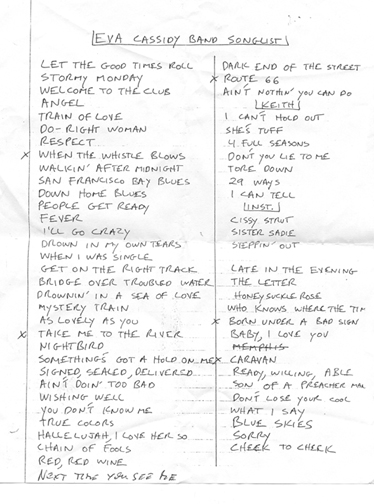 EVA CASSIDY BAND SONGLIST
LET THE GOOD TIMES ROLL
STORMY MONDAY
WELCOME TO THE CLUB
ANGEL
TRAIN OF LOVE
DO-RIGHT WOMAN
RESPECT
x WHEN THE WHISTLE BLOWS
WALKIN' AFTER MIDNIGHT
SAN FRANCISCO BAY BLUES
DOWN HOME BLUES
PEOPLE GET READY
FEVER
I'LL GO CRAZY
DROWN IN MY OWN TEARS
WHEN I WAS SINGLE
GET ON THE RIGHT TRACK
BRIDGE OVER TROUBLED WATER
DROWNIN' IN A SEA OF LOVE
MYSTERY TRAIN
AS LOVELY AS YOU
x TAKE ME TO THE RIVER
NIGHTBIRD
SOMETHING'S GOT A HOLD ON ME
SIGNED, SEALED, DELIVERED
AIN'T DOIN' TOO BAD
WISHING WELL
YOU DON'T KNOW ME
TRUE COLORS
HALLELUJAH, I LOVE HER SO
CHAIN OF FOOLS
RED, RED WINE
NEXT TIME YOU SEE ME
DARK END OF THE STREET
x ROUTE 66
AIN'T NOTHIN' YOU CAN DO
KEITH
I CAN'T HOLD OUT
SHE'S TUFF
4 FULL SEASONS
DON'T YOU LIE TO ME
TORE DOWN
29 WAYS
I CAN TELL
INST.
CISSY STRUT
SISTER SADIE
STEPPIN' OUT
LATE IN THE EVENING
THE LETTER
HONEYSUCKLE ROSE
WHO KNOWS WHERE THE TIM
x BORN UNDER A BAD SIGN
BABY, I LOVE YOU
MEMPHIS
x CARAVAN
READY, WILLING, ABLE
SON OF A PREACHER MAN
DON'T LOSE YOUR COOL
WHAT I SAY
BLUE SKIES
SORRY
CHEEK TO CHEEK